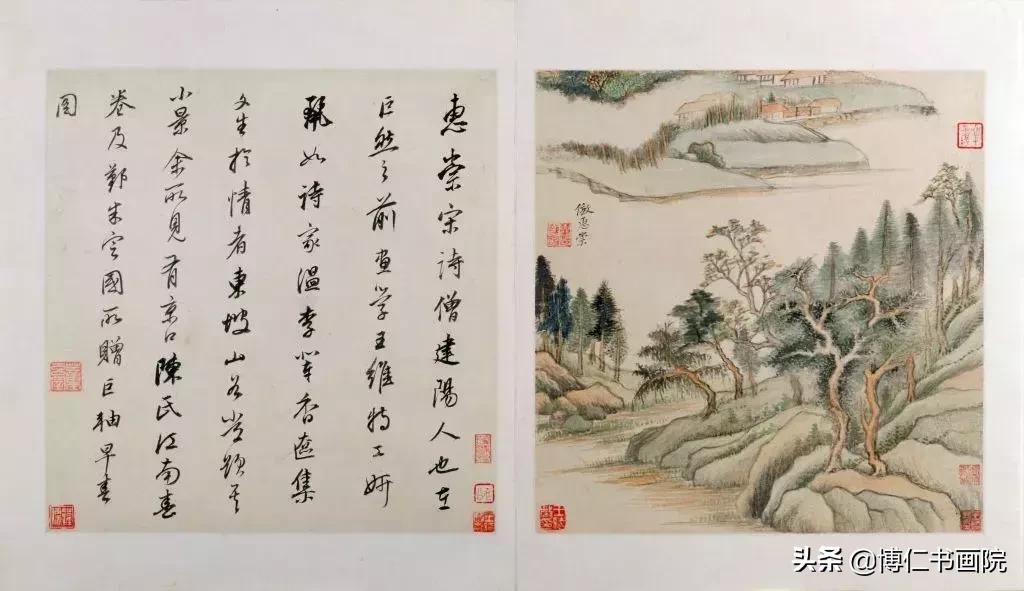 惠崇宋詩僧建陽人也在
巨然之前画學王維特工妍
麗如詩家温李輩香奩集
文生於情者東坡山谷嘗題其
小景余所見有京口陳氏江南春
卷及朱定國所贈巨軸早春
圖
倣惠崇
头条 @博仁书画院